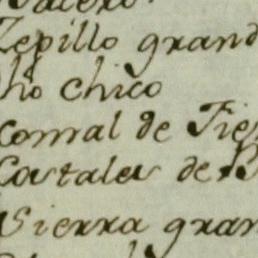 Zepillo grand
ho chico
Comal de Tie
Costales de
Sierra gran